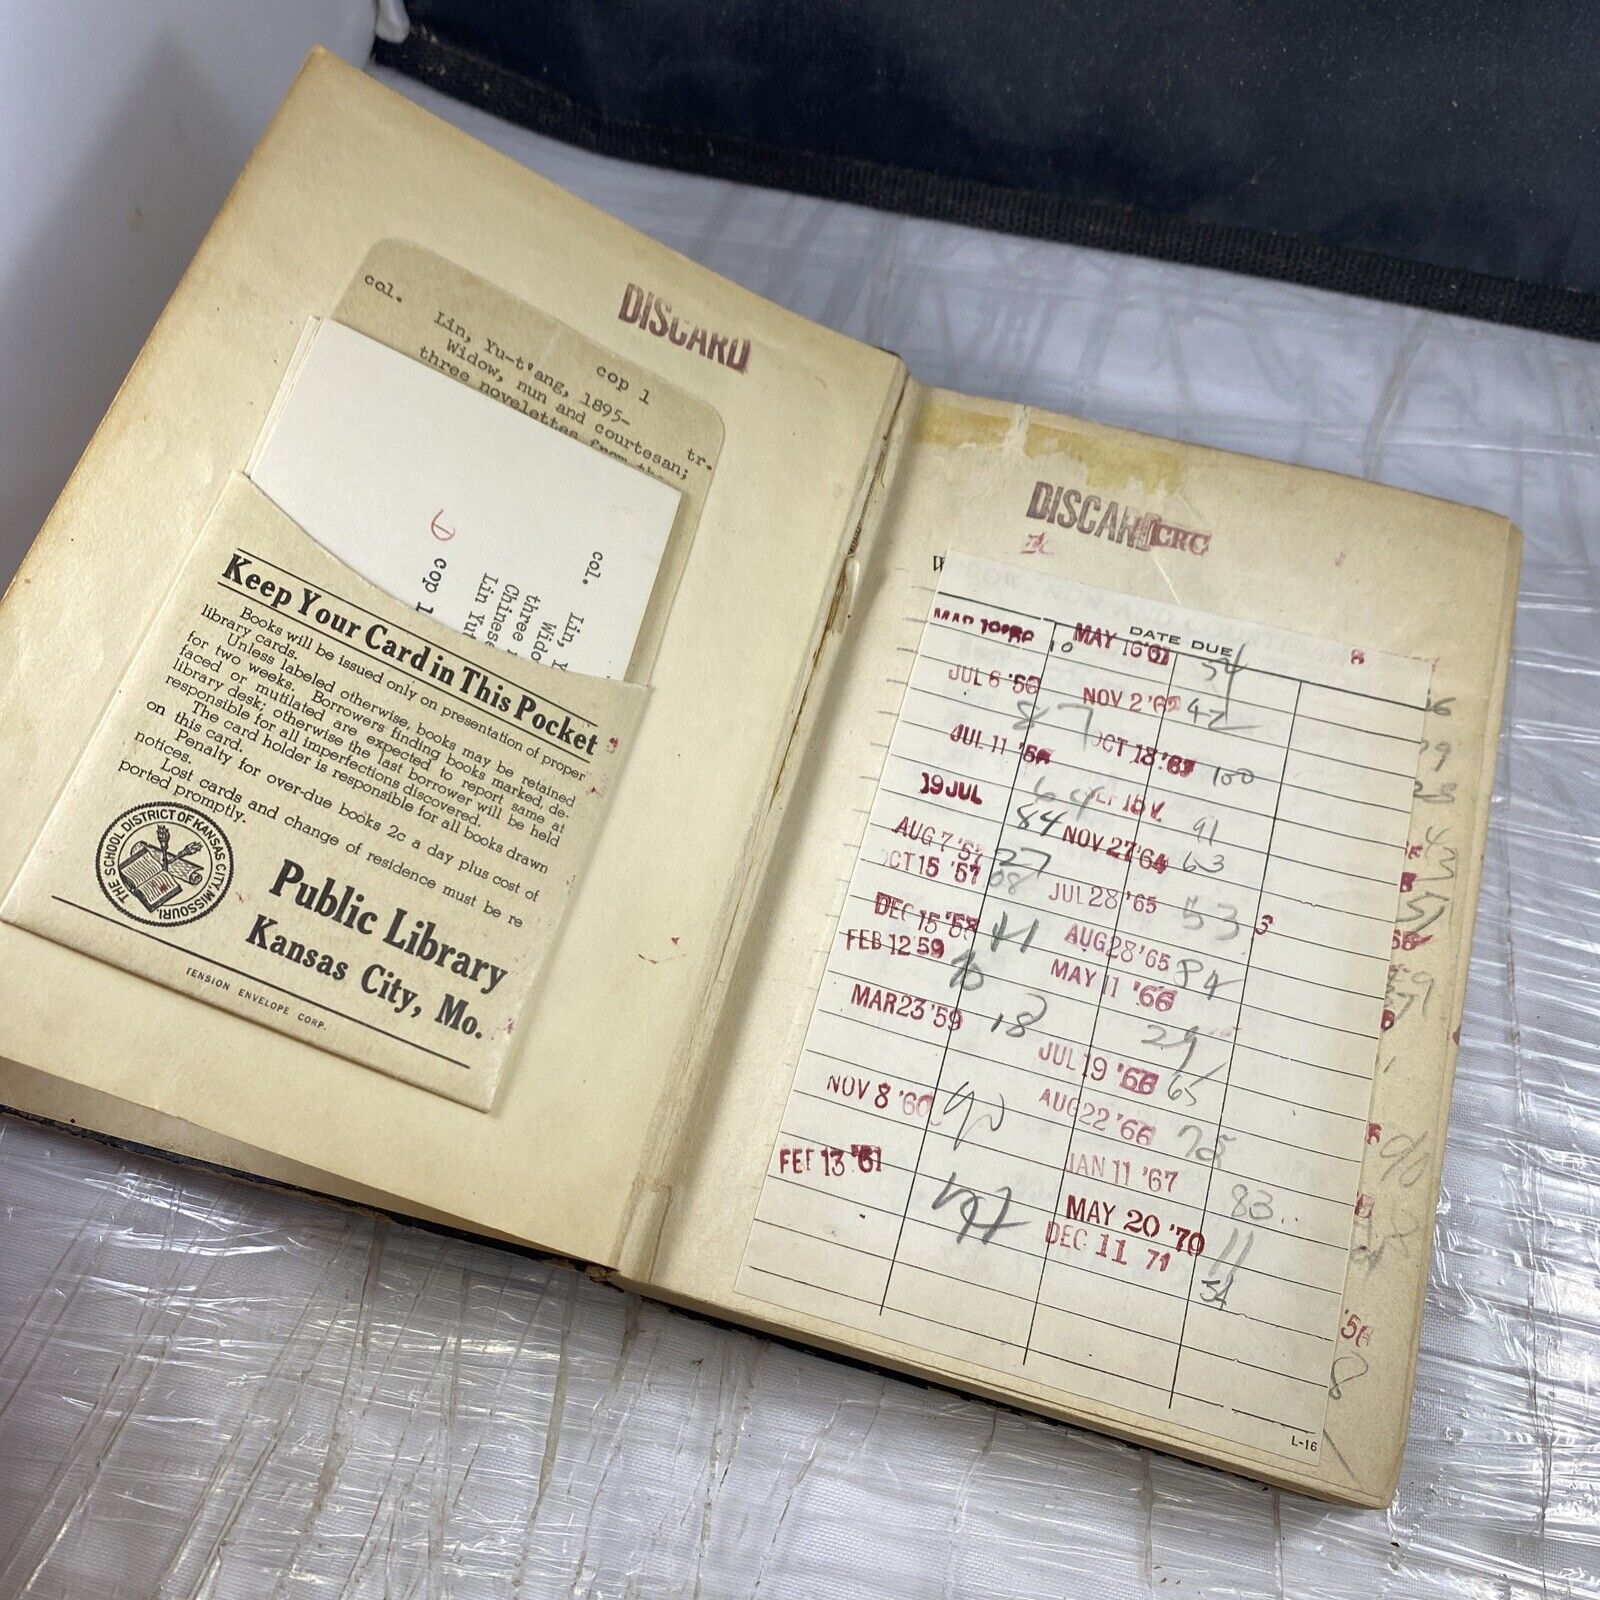 DISCARD
col.
cop 1
Lin, Yu-t'ang, 1895- tr.
Widow, nun and courtesan;
three novelettes from the
col.
Lin, Y
Wido
three
Chines
Lin Yut
cop 1
Keep Your Card in This Pocket
Books will be issued only on presentation of proper
library cards.
Unless labeled otherwise, books may be retained
for two weeks. Borrowers finding books marked, de-
faced or mutilated are expected to report same at
library desk; otherwise the last borrower will be held
responsible for all imperfections discovered.
The card holder is responsible for all books drawn
on this card.
Penalty for over-due books 2c a day plus cost of
notices.
Lost cards and change of residence must be re
ported promptly.
THE SCHOOL DISTRICT OF KANSAS CITY, MISSOURI
Public Library
Kansas City, Mo.
TENSION ENVELOPE CORP.
DISCARD CRC
W
DATE DUE
10 MAY 16 '61 54
JUL 6 '56 NOV 2 42
87
JUL 11 '56 OCT 18 100
19 JUL 64
84 91
AUG 7 '57 27 NOV 27 '64 63
OCT 15 '57 JUL 28 '65 53
DEC 15 '58 AUG 28 '65 84
FEB 12 59 MAY 11 '66
MAR 23 '59 18 29
JUL 19 '66 65
NOV 8 '60 90 AUG 22 '66 75
JAN 11 '67 83
FEB 13 '61 MAY 20 '70 11
DEC 11 71 34
'56
8
L-16